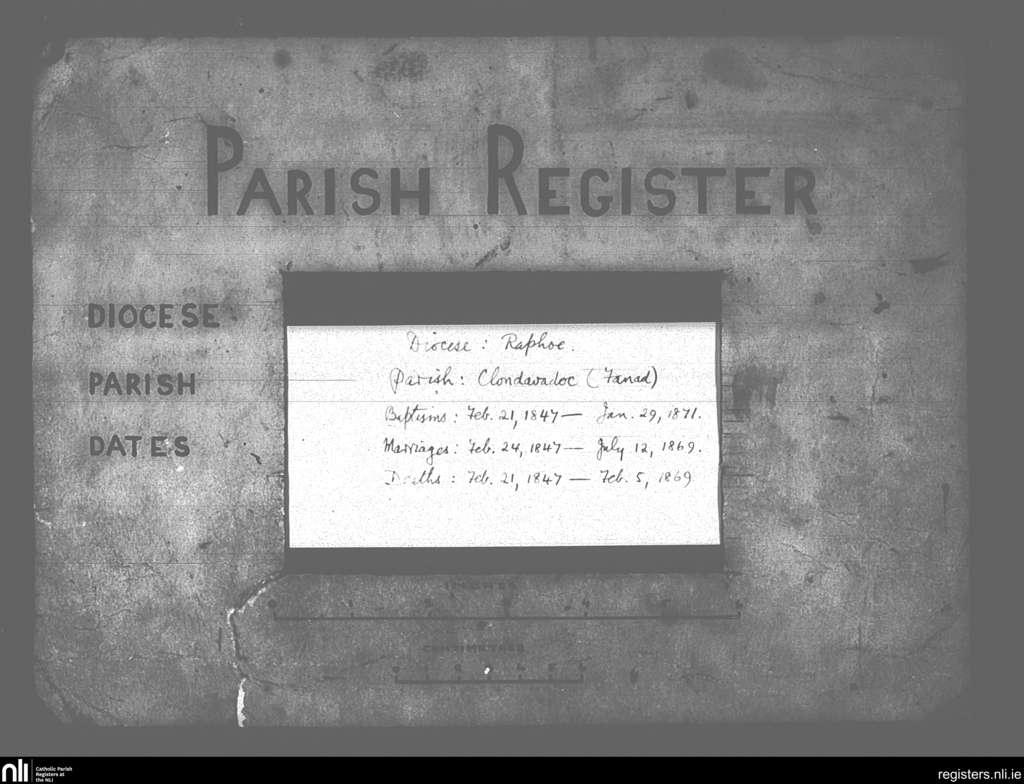 PARISH REGISTER
DIOCESE
PARISH
DATES
Diocese : Raphoe.
Parish : Clondavadoc (Fanad)
Baptisms : Feb. 21, 1847 — Jan. 29, 1871.
Marriages : Feb. 24, 1847 — July 12, 1869.
Deaths : Feb. 21, 1847 — Feb. 5, 1869
CENTIMETRES
nli
Catholic Parish
Registers at
the NLI
registers.nli.ie